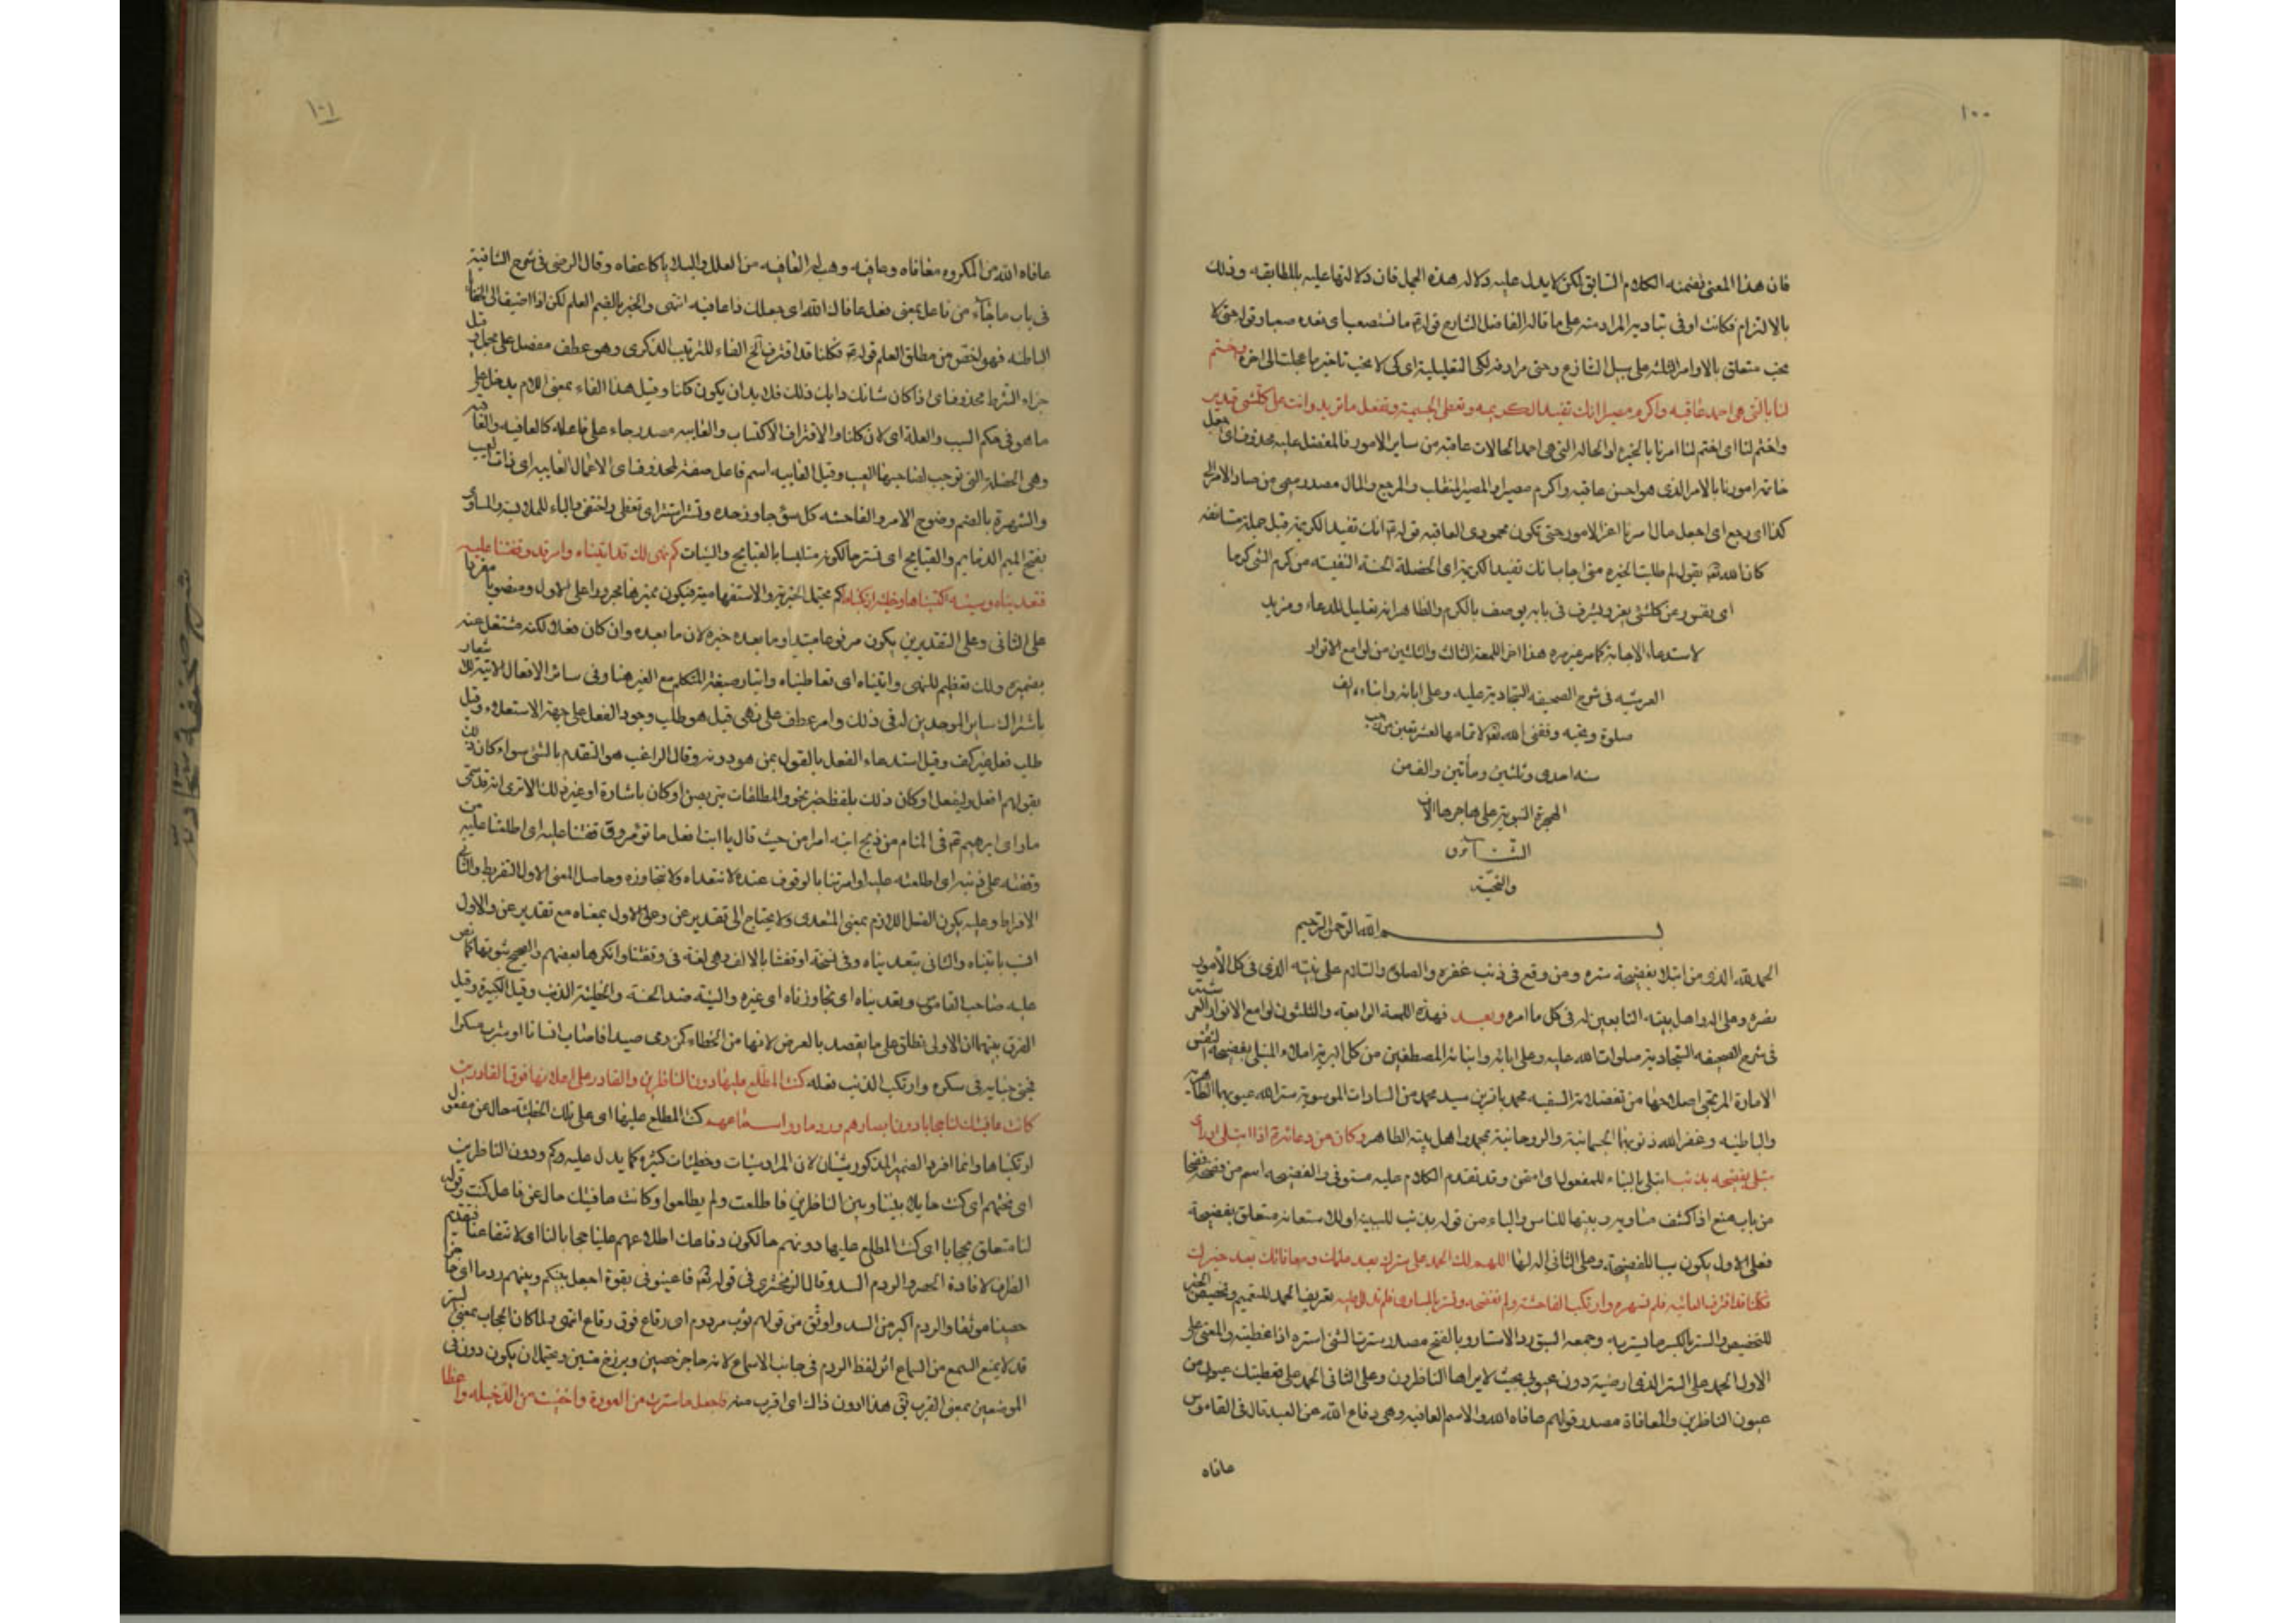 ١٠٠
فان هذا المعنى تضمنه الكلام السابق لكن لا يدل عليه دلاله هذه الجمل فان دلالتها عليه بالمطابقه وذلك
بالالتزام فكانت اوفى بتاديه المراد منه على ما قاله الفاضل الشارح قوله ما نستصعب اى نعده صعبا وقوله حتى لا
نحب متعلق بالاوامر الثلثه على سبيل التنازع وحتى مرادفه لكى التعليلية اى كى لا نحب تاخير ما عجلت الى اخره واختم
لنا بالتى هى احمد عاقبه واكرم مصيرا انك تفيد الكريمه وتعطى الجسيمة وتفعل ما تريد وانت على كلشئ قدير
واختم لنا اى اختم لنا امرنا بالخيره او الحاله التى هى احمد الحالات عاقبه من ساير الامور فالمفضل عليه محذوف اى اجعل
خاتمة امورنا بالامر الذى هو احسن عاقبه واكرم مصيرا والمصير المنقلب والمرجع والمال مصدر ميمى من صار الامر الى
كذا اى رجع اى اجعل مال امرنا اعز الامور حتى تكون محمودى العاقبه قوله انك تفيد الكريمة قيل جملة مستانفه
كان الله تعالى يقول لم طلبت الخيره منى اجاب انك تفيد الكريمة اى الخصلة الحسنة النفيسه من كرم الشئ كرما
اى نفيس وعز كلشئ يعز ويشرف فى بابه يوصف بالكرم والظاهر انه تعليل للدعاء ومزيد
لاستدعاء الاجابة كما مر غير مره هذا اخر اللمعة الثالث والثلثين من لوامع الانوار
العرشيه فى شرح الصحيفه السجادية عليه وعلى ابائه وابنائه الف
صلوة وتحيه وفقنى الله لاتمامها لعشر بقين من رجب
سنه احدى وثلثين ومأتين والف من
الهجرة النبوية على هاجرها الاف
الثناء
والتحيّة
بسم الله الرحمن الرحيم
الحمد لله الذى من ابتلا بفضيحة ستره ومن وقع فى ذنب غفره والصلوة والسلام على نبيه الذى فى كل الأمور
نصره وعلى اله واهل بيته التابعين له فى كل ما امره وبعد فهذه اللمعة الرابعة والثلثون لوامع الانوار العرشيه
فى شرح الصحيفه السجادية صلوات الله عليه وعلى ابائه وابنائه المصطفين من كل البرية املاء المبتلى بفضيحة النفس
الامارة المرتجى اصلاحها من تفضلات السفيه محمد باقر بن سيد محمد من السادات الموسوية ستر الله عيوبهما الظاهريه
والباطنيه وغفر الله ذنوبهما الجسمانية والروحانية بمحمد واهل بيته الطاهر وكان من دعائه اذا ابتلى او رأى
مبتلى بفضيحه بذنب ابتلى بالبناء للمفعول اى امتحن وقد تقدم الكلام عليه مستوفى والفضيحه اسم من فضحه فضحا
من باب منع اذا كشف مساويه وبينها للناس والباء من قوله بذنب للسببيه او للاستعانه متعلق بفضيحة
فعلى الاول يكون سببا للفضيحة وعلى الثانى اله لها اللهم لك الحمد على سترك بعد علمك ومعافاتك بعد خبرك
فكلنا قد اقترف العائبه فلم تشهره وارتكب الفاحشة ولم تفضحه وتستر بالمساوى فلم تدلل عليه تعريف الحمد للتعميم وتخصيص الخبر
للتخصيص والستر بالكسر ما يستر به وجمعه الستور والاستار وبالفتح مصدر سترت الشئ استره اذا غطيته والمعنى على
الاول الحمد على الستر الذى ارخيته دون عيوبى بحيث لا يراها الناظرون وعلى الثانى الحمد على تغطيتك عيوبى من
عيون الناظرين والمعافاة مصدر قولهم عافاه الله والاسم العافيه وهى دفاع الله عن العبد قال فى القاموس
عافاه
١٠١
عافاه الله من المكروه معافاه وعافيه وهب له العافيه من العلل والبلاء كاعفاه وقال الرضى فى شرح الشافية
فى باب ما جاء من فاعل بمعنى فعل عافاك الله اى جعلك ذا عافيه انتهى والخبر بالضم العلم لكن اذا اضيف الى الخفايا
الباطنه فهو اخص من مطلق العلم قوله فكلنا قد اقترف الخ الفاء للترتيب الذكرى وهو عطف مفصل على مجمل وقيل
جزاء الشرط محذوف اى اذا كان شانك ودابك ذلك فلا بد ان يكون كلنا وقيل هذا الفاء بمعنى اللام يدخل على
ما هو فى حكم السبب والعلة اى لان كلنا والاقتراف الاكتساب والعائبه مصدر جاء على فاعله كالعافيه والعاقبه
وهى الخصلة التى توجب لصاحبها العيب وقيل العايبه اسم فاعل صفة لمحذوف اى الافعال العايبه اى ذات العيب
والشهرة بالضم وضوح الامر والفاحشه كل سوء جاوز حده وتستر استتر اى تغطى واختفى والباء للملابسة والمساوى
بفتح الميم الذمايم والقبايح اى تستر حالكونه متلبسا بالقبايح والسيئات كم نهى لك قد اتيناه وامر قد وقفتنا عليه
فتعديناه وسيئه اكتسبناها وخطيئه ارتكبناها كم يحتمل الخبرية والاستفهامية فيكون مميزها مجرورا على الاول ومنصوبا مفردا
على الثانى وعلى التقديرين يكون مرفوعا مبتدا وما بعده خبره لان ما بعده وان كان فعلا لكنه مشتغل عنه
بضميره ولك تعظيم للنهى واتيناه اى تعاطيناه وايثار صيغة المتكلم مع الغير هنا وفى سائر الافعال الاتية للاشعار
باشتراك ساير الموحدين له فى ذلك وامر عطف على نهى قيل هو طلب وجود الفعل على جهة الاستعلاء وقيل
طلب فعل غير كف وقيل استدعاء الفعل بالقول ممن هو دونه وقال الراغب هو التقدم بالشئ سواء كان ذلك
بقولهم افعل وليفعل او كان ذلك بلفظ خبر نحو والمطلقات يتربصن او كان باشارة او غير ذلك الا ترى انه قد سمى
ما راى ابرهيم فى المنام من ذبح ابنه امرا من حيث قال يا ابت افعل ما تؤمر وقوله وقفتنا عليه اى اطلعتنا عليه من
وقفته على ذنبه اى اطلعته عليه او امرتنا بالوقوف عنده لا نتعداه ولا نتجاوزه وحاصل المعنى الاول التفريط والثانى
الافراط وعليه يكون الفعل اللازم بمعنى المتعدى ولا يحتاج الى تقدير عن وعلى الاول بمعناه مع تقدير عن والاول
انسب باتيناه والثانى بتعديناه وفى نسخة اوقفتنا بالالف وهى لغة فى وقفتنا وانكرها بعضهم والصحيح ثبوتها كما نص
عليه صاحب القاموس وتعديناه اى تجاوزناه اى غيره والسيئة ضد الحسنة والخطيئة الذنب وقيل الكبيرة وقيل
الفرق بينهما ان الاولى تطلق على ما يقصد بالعرض لانها من الخطاء كمن رمى صيدا فاصاب انسانا او شرب مسكرا
فجنى جنايه فى سكره وارتكب الذنب فعله كنت المطلع عليها دون الناظرين والقادر على اعلانها فوق القادرين
كانت عافيتك لنا حجابا دون ابصارهم وردما دون اسماعهم كنت المطلع عليها اى على تلك الخطيئة حال عن مفعول
ارتكبناها وانما افرد الضمير المذكور شيئان لان المراد سيئات وخطيئات كثيره كما يدل عليه وكم ودون الناظرين
اى تحتهم اى كنت حايلا بيننا وبين الناظرين فاطلعت ولم يطلعوا وكانت عافيتك حال عن فاعل كنت وقوله
لنا متعلق بحجابا اى كنت المطلع عليها دونهم حالكون دفاعك اطلاعهم علينا حجابا لنا اى لانتفاعنا فتقديم
الظرف لافادة الحصر والردم السد وقال الزمخشرى فى قوله تعالى فاعينونى بقوة اجعل بينكم وبينهم ردما اى حاجزا
حصينا موثقا والردم اكبر من السد واوثق من قولهم ثوب مردوم اى رقاع فوق رقاع انتهى ولما كان الحجاب بمعنى الستر
قد لا يمنع السمع من السماع اثر لفظ الردم فى جانب الاسماع لانه حاجز حصين وبرزخ متين ويحتمل ان يكون دون فى
الموضعين بمعنى القرب يق هذا دون ذاك اى اقرب منه فاجعل ما سترت من العورة واخفيت من الدخيله واعظا
شرح صحيفة سجادية